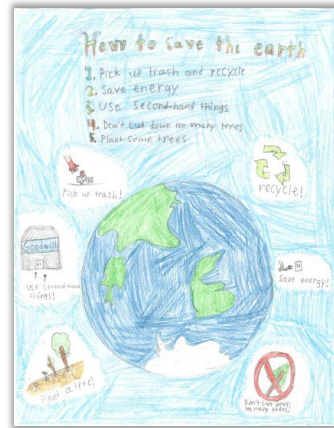 How to save the earth
1. Pick up trash and recycle
2. Save energy
3. Use Second-hand things
4. Don't cut down too many trees
5. Plant some trees
Pick up trash!
recycle!
Goodwill
Use Second-hand
things!
Save energy!
Plant a tree!
Don't cut down
too many trees!